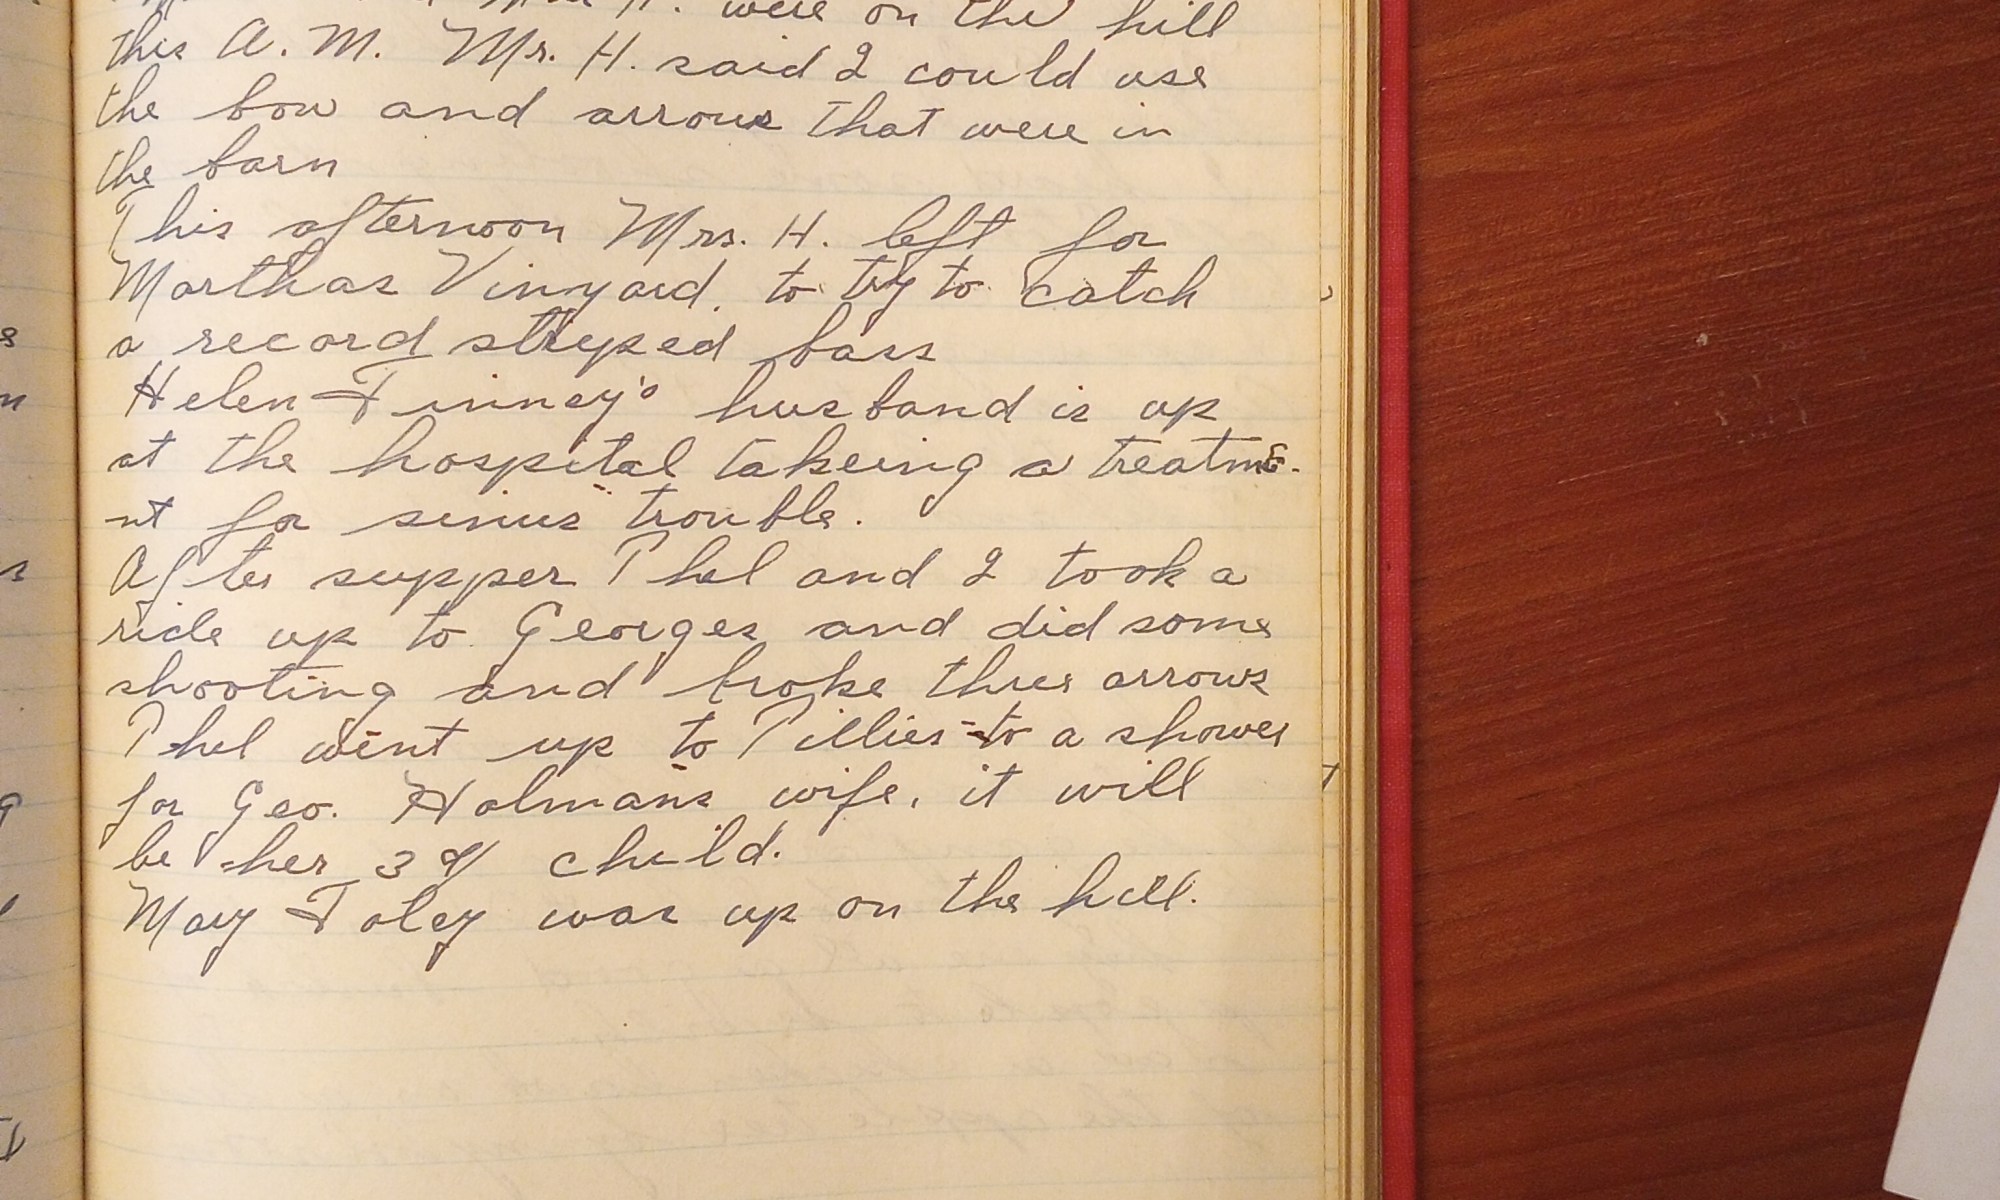 Mrs. H. were on the hill
this A. M. Mr. H. said I could use
the bow and arrows that were in
the barn
This afternoon Mrs. H. left for
Marthas Vinyard, to try to catch
a record striped bass
Helen Finney's husband is up
at the hospital takeing a treatme-
nt for sinus trouble.
After supper Phel and I took a
ride up to Georges and did some
shooting and broke three arrows
Phel went up to Tillies to a shower
for Geo. Holmans wife, it will
be her 3d child.
May Foley was up on the hill.